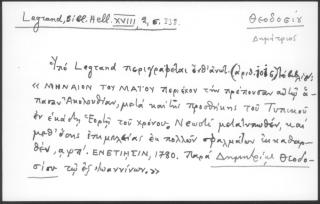 Legrand, Bibl. Hell. XVIII, 2, σ. 338.
Θεοδοσίου
Δημήτριος
Ὑπὸ Legrand περιγράφεται
« ΜΗΝΑΙΟΝ ΤΟΥ ΜΑΪΟΥ περιέχον τὴν πρέπουσαν αὐτῷ ἅ-
πασαν Ἀκολουθίαν, μετὰ καὶ τῆς προσθήκης τοῦ Τυπικοῦ
ἐν ἑκάστῃ Ἑορτῇ τοῦ χρόνου. Νεωστὶ μετατυπωθέν, καὶ
μεθ' ὅσης ἐπιμελείας ἐκ πολλῶν σφαλμάτων ἐκκαθαρ-
θέν, αψπ'. ΕΝΕΤΙΗΣΙΝ, 1780. Παρὰ Δημητρίῳ Θεοδο-
σίου τῷ ἐξ Ἰωαννίνων.»